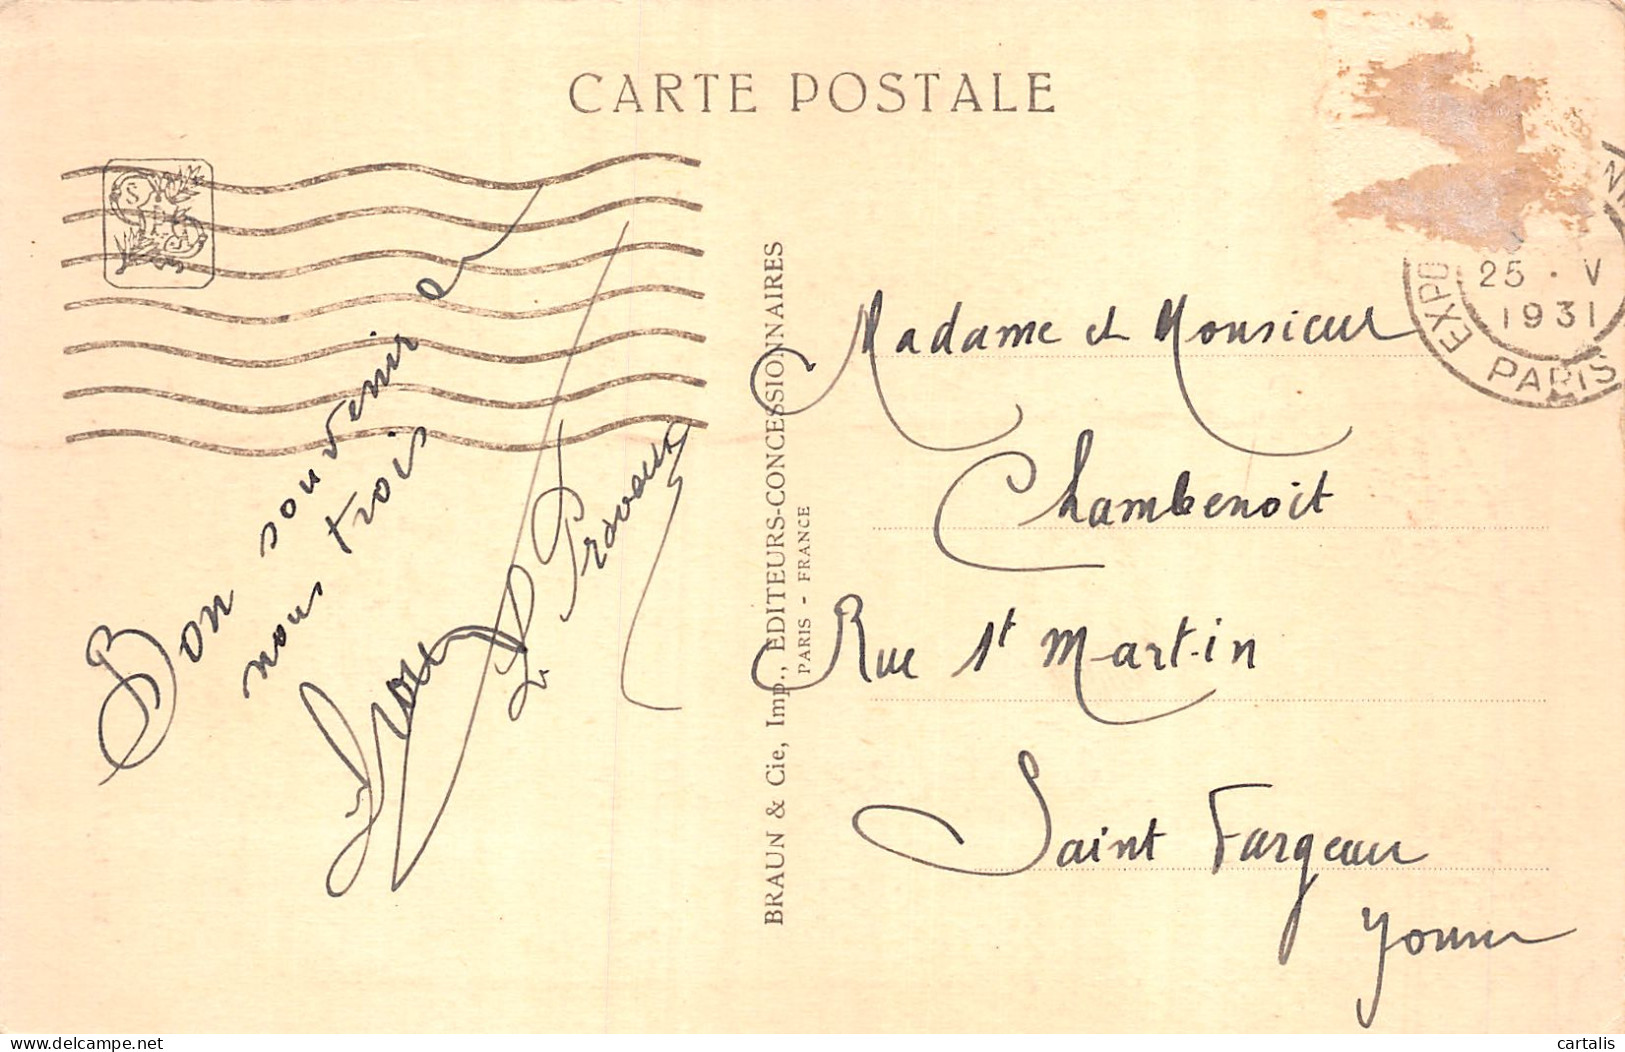 CARTE POSTALE
EXPO
PARIS
25 · V
1931
S
P
A
Bon souvenir à
nous trois
BRAUN & Cie, Imp., EDITEURS-CONCESSIONNAIRES
PARIS - FRANCE
Madame et Monsieur
Chambenoit
Rue St Martin
Saint Fargeau
Yonne
cartalis